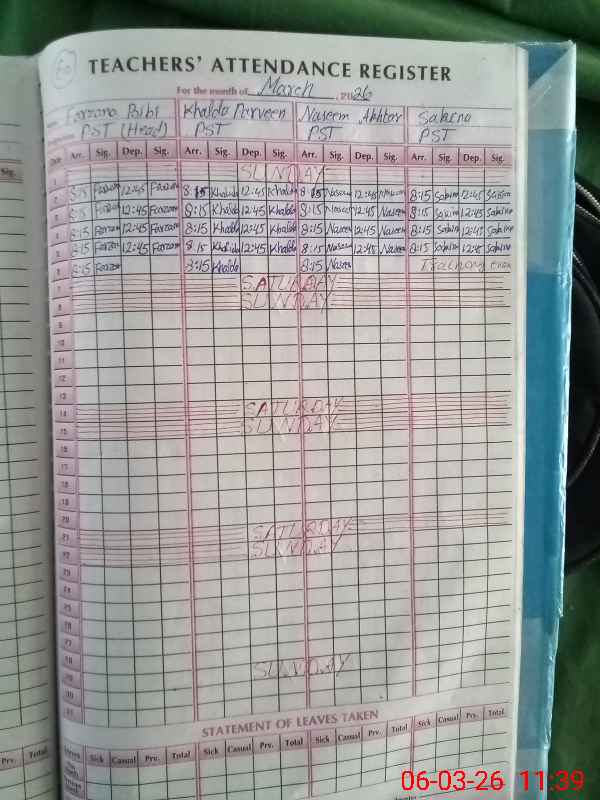 60
TEACHERS' ATTENDANCE REGISTER
For the month of March, 2026
Farzana Bibi Khalida Parveen Naseem Akhtar Sabina
PST (Head) PST PST PST
Date Arr. Sig. Dep. Sig. Arr. Sig. Dep. Sig. Arr. Sig. Dep. Sig. Arr. Sig. Dep. Sig.
1 SUNDAY
2 8:15 Farzan 12:45 Farzan 8:15 Khalida 12:45 Khalida 8:15 Naseem 12:45 Naseem 8:15 Sabina 12:45 Sabina
3 8:15 Farzan 12:45 Farzan 8:15 Khalida 12:45 Khalida 8:15 Naseem 12:45 Naseem 8:15 Sabina 12:45 Sabina
4 8:15 Farzan 12:45 Farzan 8:15 Khalida 12:45 Khalida 8:15 Naseem 12:45 Naseem 8:15 Sabina 12:45 Sabina
5 8:15 Farzan 12:45 Farzan 8:15 Khalida 12:45 Khalida 8:15 Naseem 12:45 Naseem 8:15 Sabina 12:45 Sabina
6 8:15 Farzan 8:15 Khalida 8:15 Naseem Training
7 SATURDAY
8 SUNDAY
9
10
11
12
13
14 SATURDAY
15 SUNDAY
16
17
18
19
20
21 SATURDAY
22 SUNDAY
23
24
25
26
27
28
29 SUNDAY
30
31
STATEMENT OF LEAVES TAKEN
Leaves Sick Casual Prv. Total Sick Casual Prv. Total Sick Casual Prv. Total Sick Casual Prv. Total
Sig.
Prv. Total
06-03-26 11:39